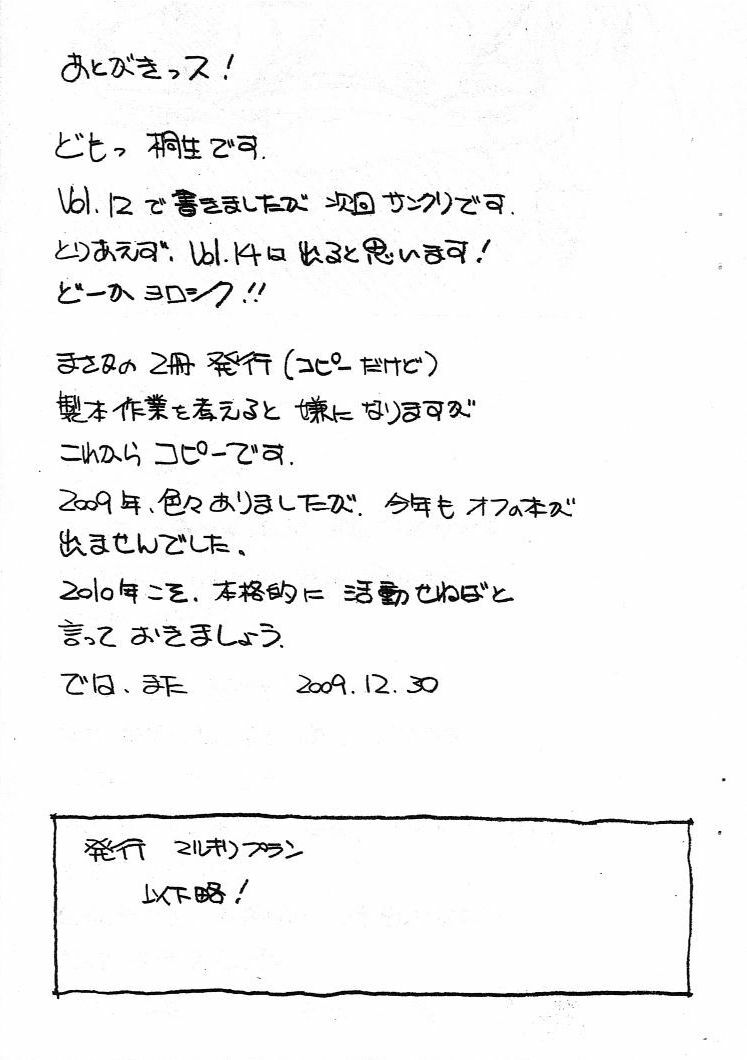 あとがきっス！
どもっ 桐生です.
Vol.12で書きましたが 次回サンクリです.
とりあえず、Vol.14は出ると思います！
どーかヨロシク!!
まさかの2冊発行(コピーだけど)
製本作業を考えると嫌になりますが
これからコピーです.
2009年、色々ありましたが. 今年もオフの本が
出ませんでした。
2010年こそ. 本格的に 活動せねばと
言っておきましょう.
では、また 2009.12.30
発行 マルキリプラン
以下略！